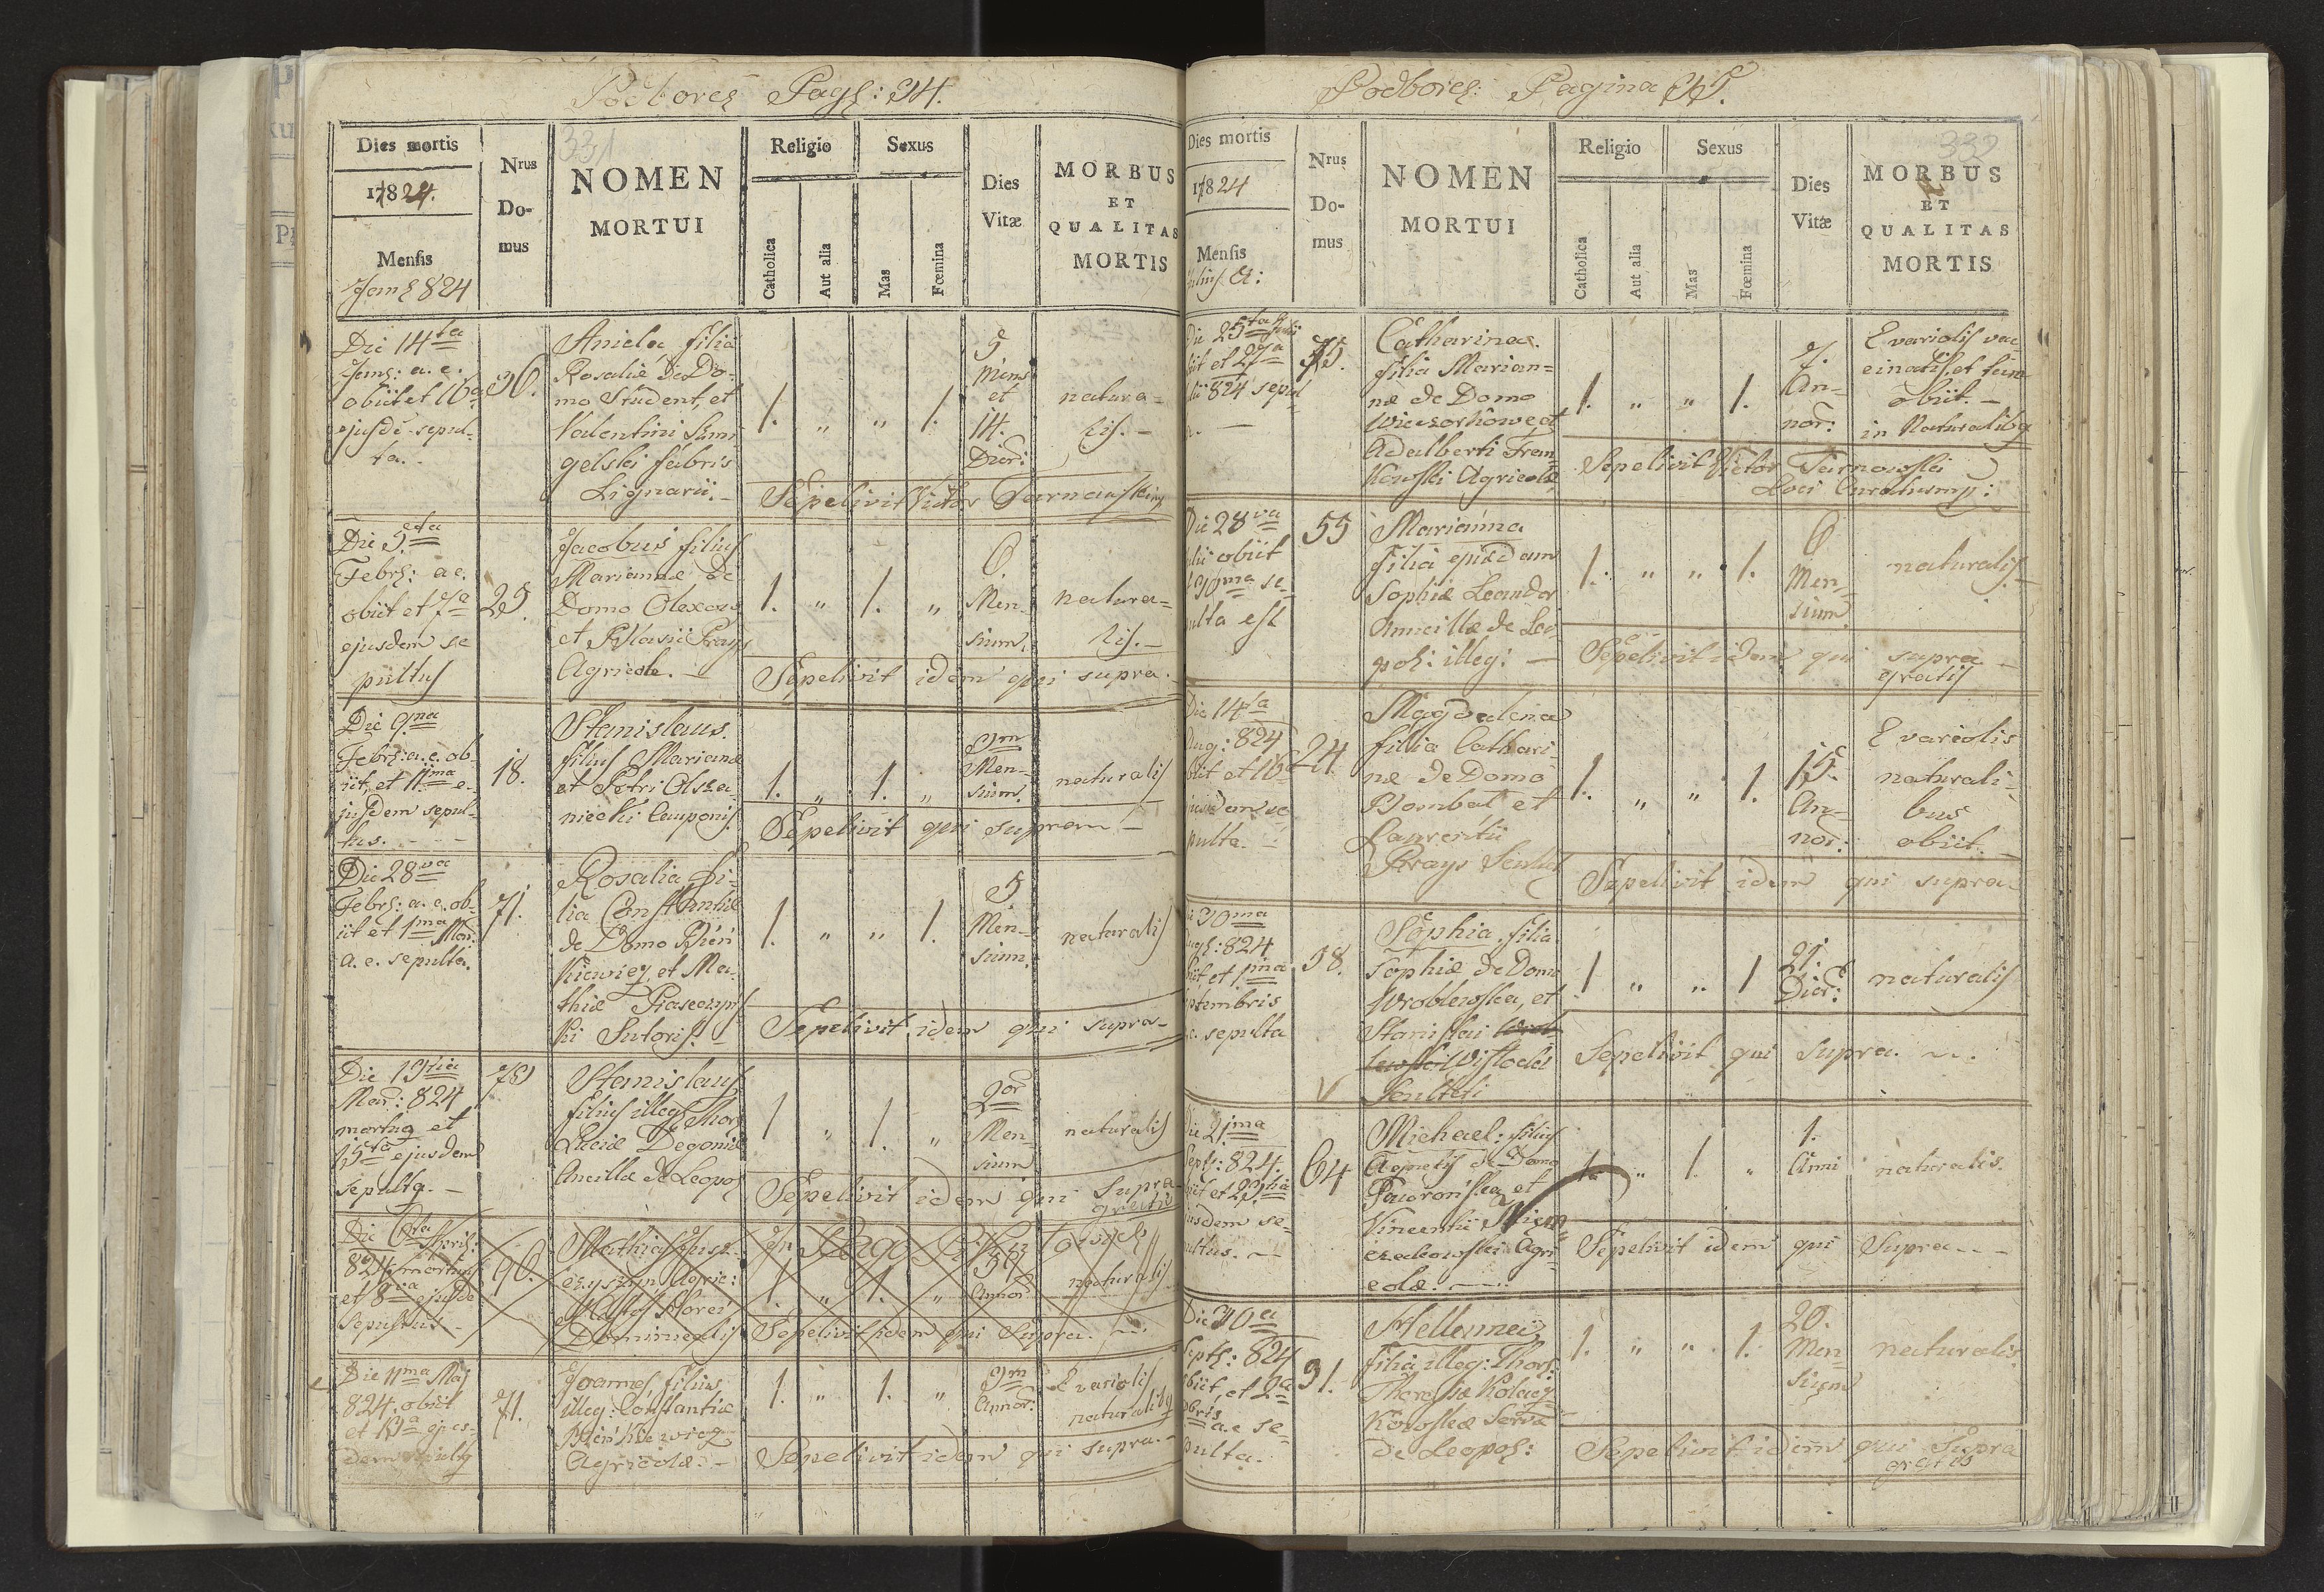 Podborcz Pagȝ: 34.
331
Dies mortis
17824.
Mensis
Janȝ 824
Nrus
Do-
mus
NOMEN
MORTUI
Religio
Catholica
Aut alia
Sexus
Mas
Fœmina
Dies
Vitæ
MORBUS
ET
QUALITAS
MORTIS
Die 14ta
Janȝ: a. c.
obiit et 16a
ejusdē sepul-
ta. -
36.
Aniela filia
Rosaliæ de Do-
mo Student, et
Valentini
gelski fabris
Lignarii. -
1. " " 1.
5
Mens
et
14.
Dier:
natura-
lis. -
Sepelivit Victor
Die 5ta
Febrȝ: a c.
obiit et 7a
ejusdem se
pultus
25.
Jacobus filius
Mariannæ de
Domo
et
Agricolæ. -
1. " 1. "
6
Men-
sium.
natura-
lis. -
Sepelivit idem qui supra.
Die 9na
Febrȝ: a. c. ob-
iit, et 11ma e-
jusdem sepul-
tus. - - -
18.
Stanislaus.
filius Mariannæ
et Petri Olsza-
niecki Cauponis.
1. " 1. "
3m
Men-
sium.
naturalis
Sepelivit qui supra -
Die 28va
Febrȝ: a. c. ob-
iit et 1ma Mar:
a. c. sepulta.
71.
Rosalia fi-
lia Constantiæ
de Domo Bień
kiewicz, et Ma-
thiæ Piaseczyńs
ki Sutoris. -
1. " " 1.
5
Men-
sium.
naturalis
Sepelivit idem qui supra -
Die 13tia
Mar: 824
mortuq et
15ta ejusdem
sepultq. -
78
Stanislaus
filius illeg Thor
Luciæ
Ancillæ de Leopoȝ
1 " 1. "
2or
Men-
sium
naturalis
Sepelivit idem qui supra
gratis
Die 6ta Aprilȝ:
824 mortuus
et 8va ejusdē
Sepultus -
90.
Mathias
Agric:
Dominicalis
1 " 1. "
Annor
naturalis
Sepelivit idem qui Supra. -
Die 11ma Maj
824. obiit
et 13a ejus-
dem sepultq
71.
Joannes, filius
illeg: Constantiæ
Bieńkiewicz
Agricolæ. -
1. " 1. "
3m
Annor:
E variolis
naturalibq
Sepelivit idem qui supra. -
Podborcȝ: Pagina 35.
332
Dies mortis
17824
Mensis
Julius &:
Nrus
Do-
mus
NOMEN
MORTUI
Religio
Catholica
Aut alia
Sexus
Mas
Fœmina
Dies
Vitæ
MORBUS
ET
QUALITAS
MORTIS
Die 25ta Julii
obiit et 27a
Julii 824 sepul
75.
Catharina.
filia Marian=
næ de Domo
et
Adalberti Fran-
kowski Agricolæ
1. " " 1.
7.
An-
nor:
E variolis vac
cinatis, et
obiit. -
in Naturalibq
Sepelivit Victor Tarnowski
Loci Curatusmp:
Die 28va
Julii obiit
et 30ma se-
pulta est
55
Marianna
Filia ejusdam
Sophiæ
Ancillæ de Leo-
poȝ: illeg: -
1. " " 1.
6
Men-
sium
naturalis
Sepelivit idem qui supra -
gratis
Die 14ta
Aug: 824
obiit et 16a
ejusdem se
pulta. -
24.
Magdalena
filia Cathari-
næ de Domo
Bombat et
Laurentii
1. " " 1.
15.
An-
nor:
E variolis
naturali-
bus
obiit. -
Sepelivit idem qui supra
Die 30ma
Augȝ: 824
obiit et 1ma
Septembris
a.c. sepulta
58.
Sophia, filia
Sophiæ de Domo
Wroblewska, et
Stanislai
lewski Wisłocki
Sculteti
1 " " 1
21.
Dier:
naturalis
Sepelivit qui supra. ~.
Die 21ma
Septȝ: 824.
obiit et 23tia
ejusdem se-
pultus. -
64
Michael: filius
Agnetis de Domo
et
Vincentii
Agri-
colæ. -
1. " 1. "
1.
Anni
naturalis.
Sepelivit idem qui Supra - -
Die 30a
Septȝ: 824
obiit, et 2a
8bris
a.c se-
pulta.
31.
Hellenna,
filia illeg: Thor:
Theresiæ
kowska Servæ
de Leopoȝ:
1. " " 1.
20.
Men-
sium
naturalis
Sepelivit idem qui Supra
gratis